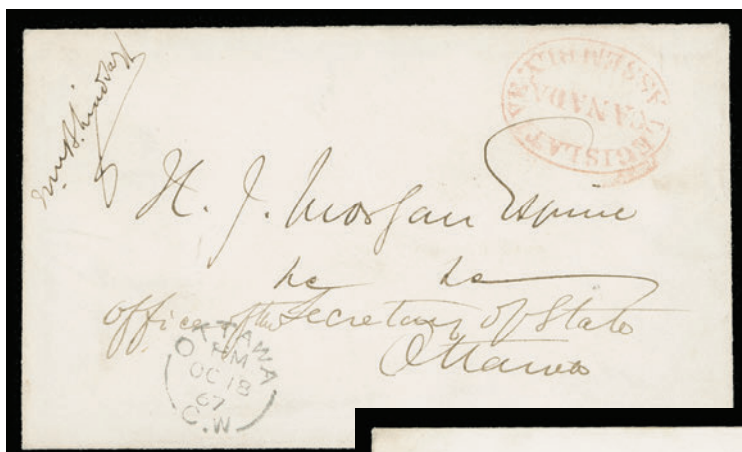 Wm B. Lindsay
LEGISLATIVE ASSEMBLY
CANADA
H. J. Morgan Esquire
&c &c
Office of the Secretary of State
Ottawa
OTTAWA
PM
OC 18
67
C.W.